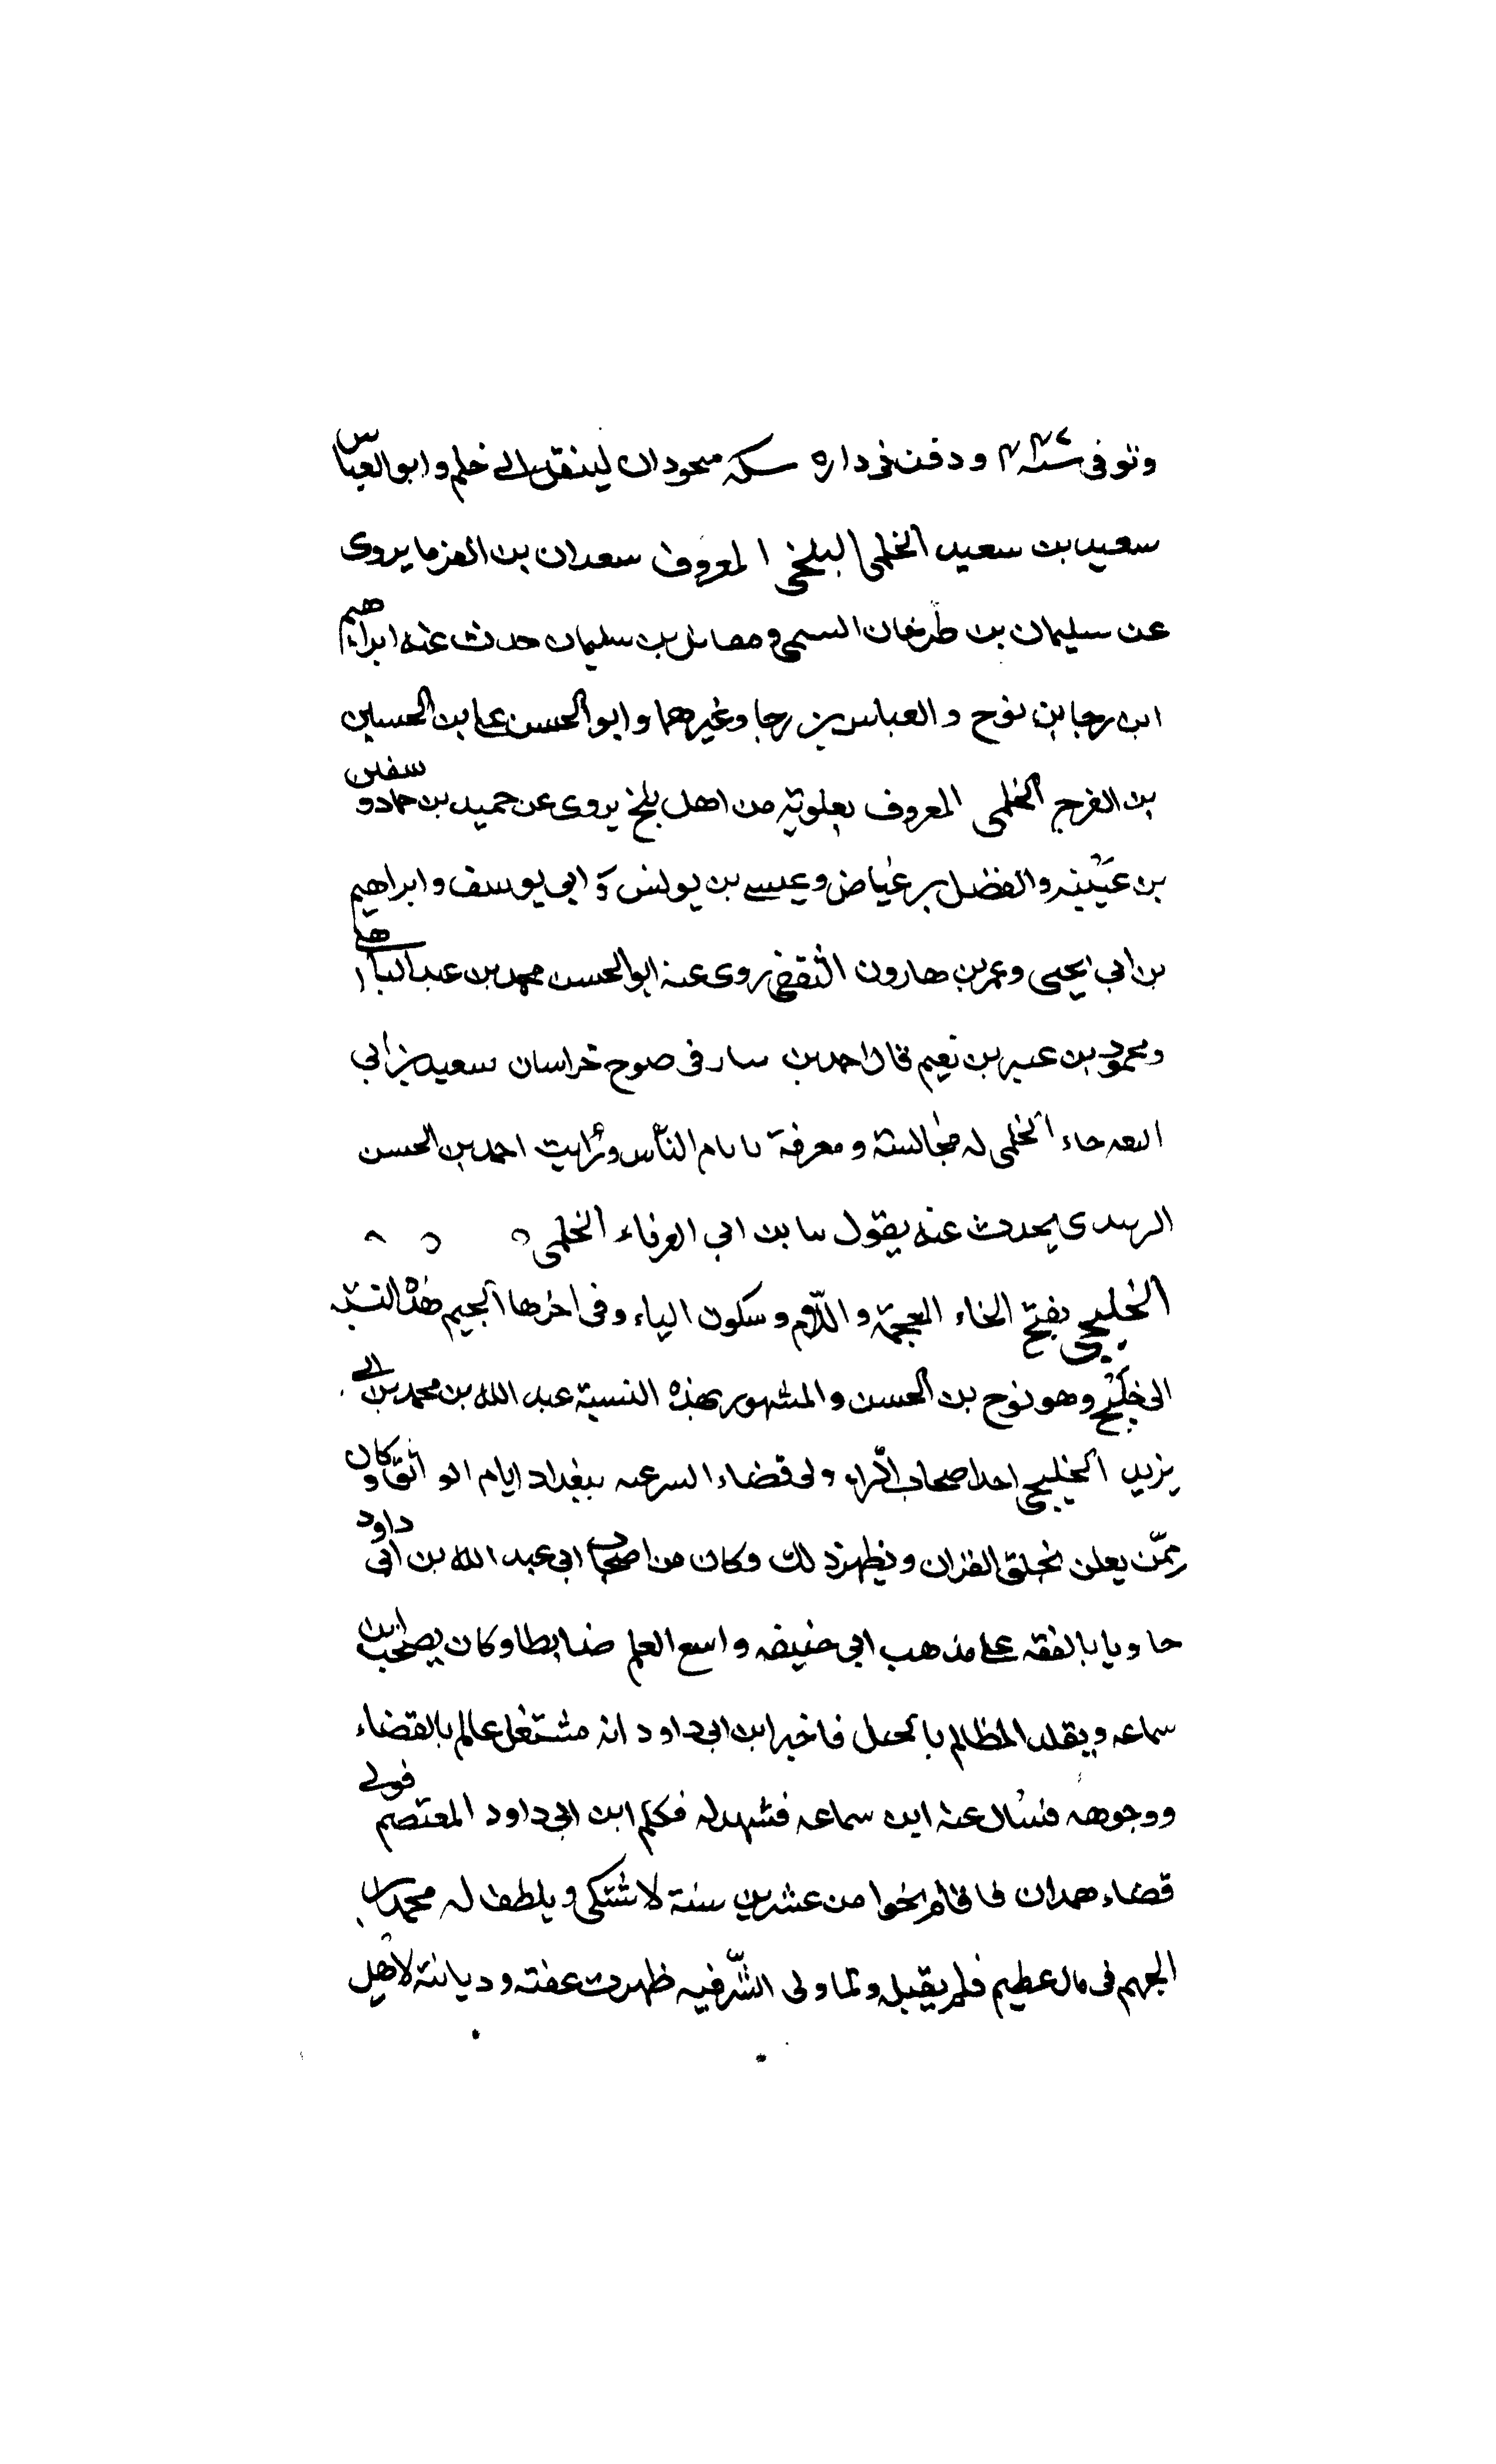 وتوفى سنة ودفن فى داره سكة لينقل الى خلم وابو العباس
سعيد بن سعيد الخلمى البلخى المعروف سعدان بن يروى
عن سليمان بن طرخان ومقاتل بن سليمان حدث عنه ابراهيم
ابن رجا بن نوح والعباس بن رجا وغيرهما وابو الحسن على بن الحسين
بن الفرج الخلمى المعروف بعلوية من اهل بلخ يروى عن حميد بن حماد وسفين
بن عيينه والفضل بن عياض وعيسى بن يونس و ابى يوسف وابراهيم
بن ابى يحيى وعمر بن هارون الثقفى روى عنه ابو الحسن محمد بن عبد
ومحمود بن عنبر بن نعيم قال احمد بن سيار فى خراسان سعيد بن ابى
الخلمى له مجالسة ومعرفة بايام الناس ورايت احمد بن الحسن
يحدث عنه يقول بن ابى العرفاء الخلمى
الخليجى بفتح الخاء المعجمة واللام وسكون الياء وفى اخرها الجيم هذه النسبة
الى خليج وهو نوح بن الحسن والمشهور بهذه النسبة عبد الله بن محمد بن ابى
يزيد الخليجى احد اصحاب الراى ولى قضاء الشرقية ببغداد ايام الواثق وكان
ممّن يعلن بخلق القران ويظهر ذلك وكان من اصحاب ابى عبد الله بن ابى داود
حاويا بالفقه على مذهب ابى حنيفه واسع العلم ضابطا وكان يصحب ابن
سماعه ويقلد المظالم بالجبل فاخبر ابن ابى داود انه مشتغل عالم بالقضاء
ووجوهه فسال عنه ابن سماعه فشهد له فكلم ابن ابى داود المعتصم فولى
قضاء همدان فاقام نحوا من عشرين سنة لا تشتكى ويلطف له محمد بن
الجهم فى مال عظيم فلم يقبله ولما ولى الشرقيه ظهرت عفته وديانته لاهل